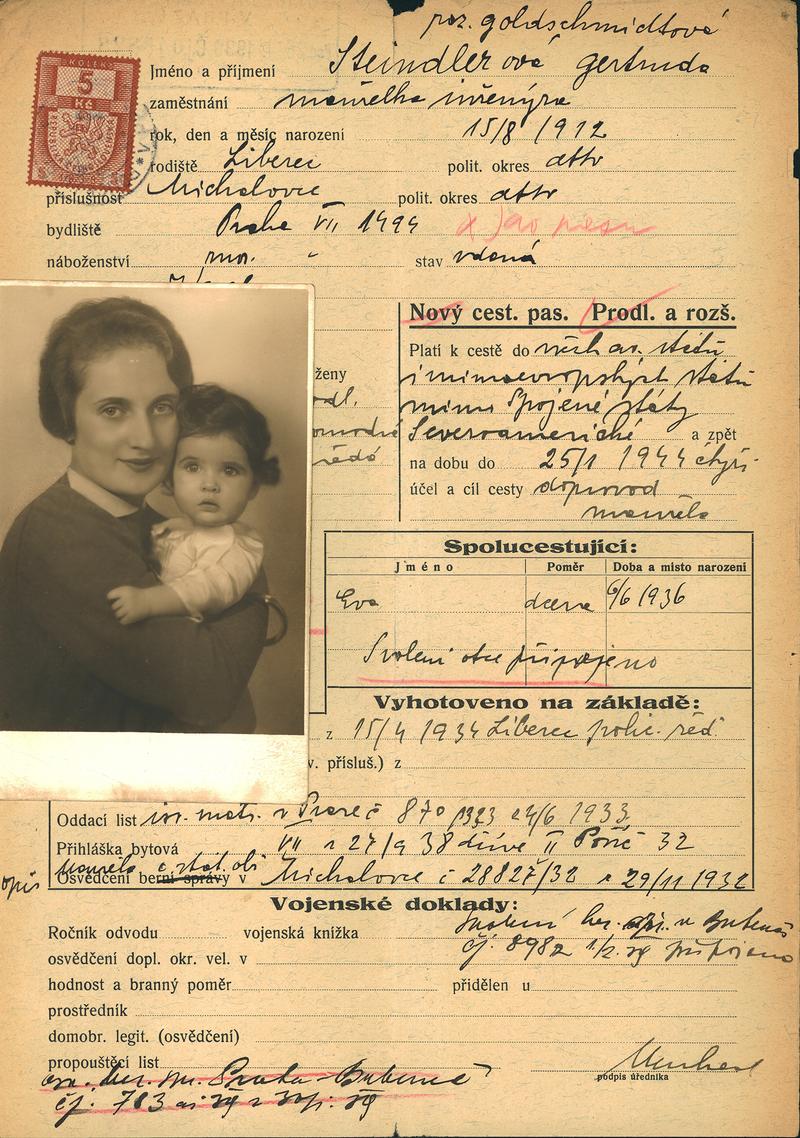 roz. goldschmidtová
KOLEK
5
Kč
Jméno a příjmení Steindlerová gertruda
zaměstnání manželka inženýra
rok, den a měsíc narození 15/8 1912
rodiště Liberec polit. okres dtto
příslušnost Michalovce polit. okres dtto
bydliště Praha VII 1494
náboženství stav
Nový cest. pas. Prodl. a rozš.
Platí k cestě do všech států
i mimoevropských států
ženy
mimo Spojené státy
Severoamerické a zpět
na dobu do 25/1 1944
účel a cíl cesty doprovod
manžela
Spolucestující:
Jméno Poměr Doba a místo narození
Eva dcera 6/6 1936
Svolení otce připojeno
Vyhotoveno na základě:
z 15/4 1934 Liberec polic. řed.
v. přísluš.) z
Oddací list isr. matr. v Praze č 870 24/6 1933
Přihláška bytová VII 27/9 38 dříve II Poříč 32
opis manžela
Osvědčení berní správy v Michalovce č 28827/32 29/11 1932
Vojenské doklady:
Ročník odvodu vojenská kniž­ka
osvědčení dopl. okr. vel. v čj. 8982 připojeno
hodnost a branný poměr přidělen u
prostředník
domobr. legit. (osvědčení)
propouštěcí list
podpis úředníka
Praha-Bubeneč
čj. 783